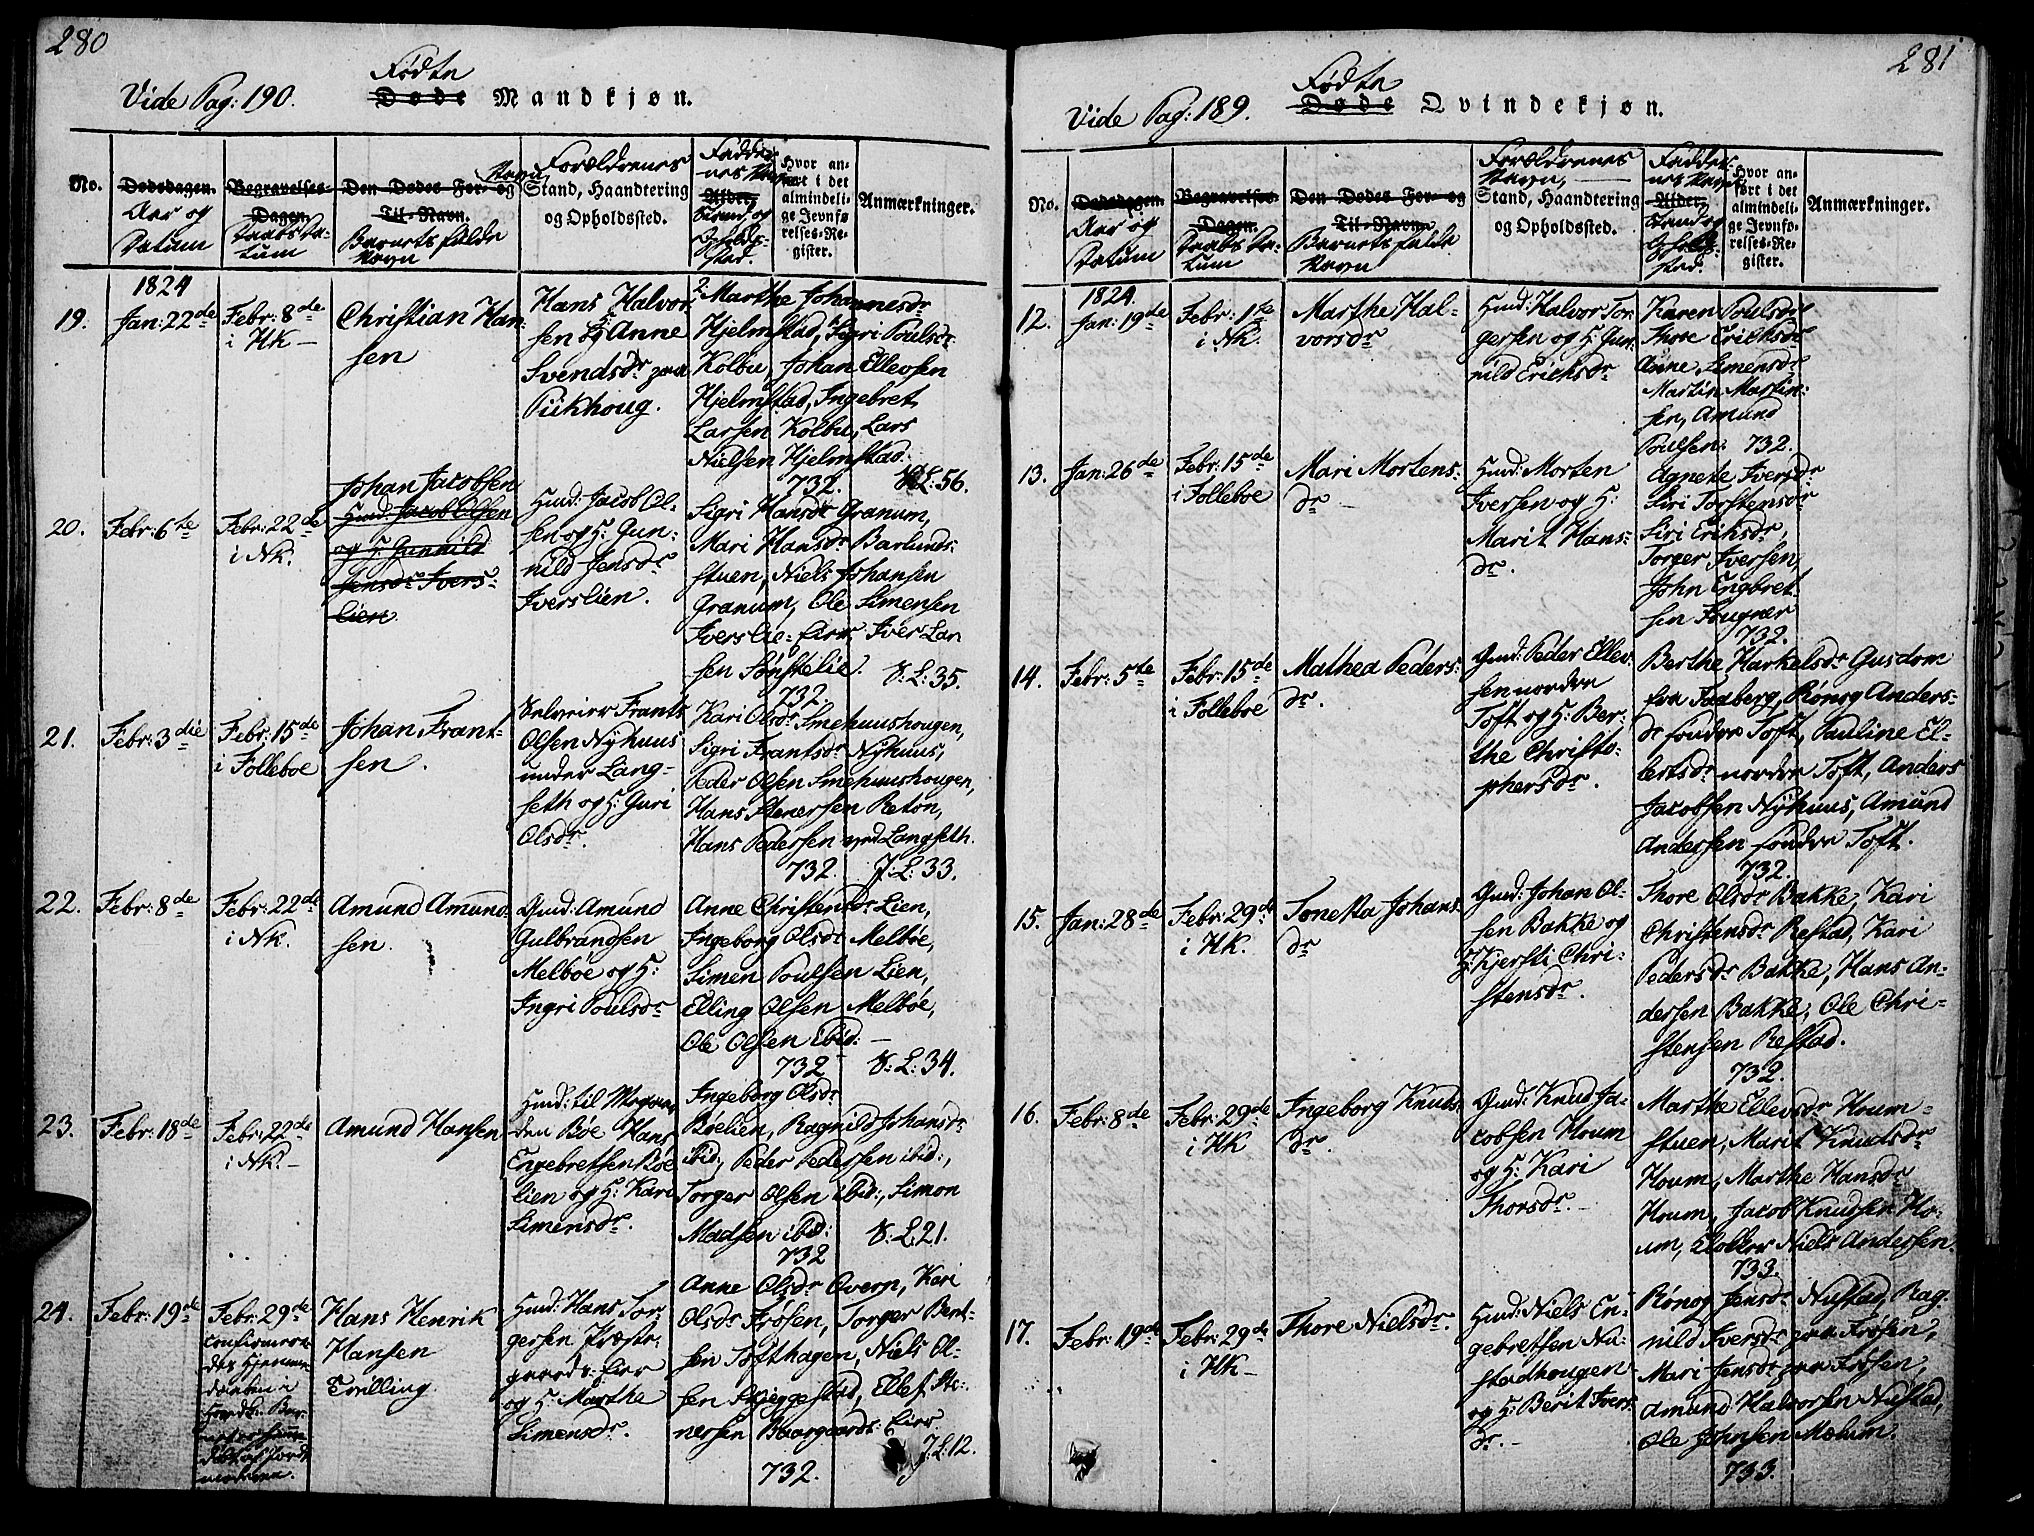 280
Vide Pag: 190. Fødte
Døde Mandkjøn.
No.
Dødsdagen.
Aar og
Datum
Begravelses-
Dagen.
Daabs Da-
tum
Den Dødes For- og
Til-Navn.
Barnets fulde
Navn
Navn, Forældrenes
Stand, Haandtering
og Opholdssted.
Faddernes Navn
Alder,
Stand og
Opholds-
sted.
Hvor an-
ført i det
almindeli-
ge Jevnfø-
relses-Re-
gister.
Anmærkninger.
1824
19. Jan: 22de
Febr: 8de
i HK –
Christian Han-
sen
Hans Halvor-
sen og Anne
Svendsdr paa
Pukhoug.
2. Marthe Johannesdr
Hjelmstad, Sigri Poulsdr
Kolbu, Johan Ellevsen
Hjelmstad, Ingebret
Larsen Kolbu, Lars
Nielsen Hjelmstad.
732. V.L: 56.
20. Febr: 6te
Febr: 22de
i NK.
Johan Jacobsen
Huusd: Jacob Olsen
og H: Gunnild
Jensdr Ivers-
lien
Huusd: Jacob Ol-
sen og H: Gun-
nild Jensdr
Iverslien.
Sigri Hansdr Granum,
Mari Hansdr Barlunds-
stuen, Niels Johansen
Granum, Ole Simensen
Iverslie-Eier Iver Lar
sen Sønstelie.
732. V:L:35.
21. Febr: 3die
Febr: 15de
i Folleboe
Johan Frant-
sen.
Selveier Frants
Olsen Nyhuus
under Lang-
seth og H: Guri
Olsdr.
Kari Olsdr Smehuushougen,
Sigri Frantsdr Nyhuus,
Peder Olsen Smehuushougen,
Hans Stenersen Reton,
Hans Pedersen vrd Langseth.
732. J:L:33.
22. Febr: 8de
Febr: 22de
i NK.
Amund Amund-
sen.
Gmd: Amund
Gulbrandsen
Melbøe og H:
Ingri Poulsdr
Anne Christensdr Lien,
Ingeborg Olsdr Melbøe,
Simen Poulsen Lien,
Elling Olsen Melbøe,
Ole Olsen ibid: –
732 V:L:34.
23. Febr: 18de
Febr: 22de
i NK. –
Amund Hansen
den Boe Hans
Engebretsen Bøe
lien og H: Kari
Simensdr.
Ingeborg Olsdr
Bøelien, Ragnild Johansdr
ibid:, Peder Pedersen ibid:,
Torger Olsen ibid:, Simon
Madsen ibid:
732 V:L:21.
24. Febr: 19de
Febr: 29de
Hans Henrik
Hansen
Tvilling.
Huusd: Hans Tor-
gersen Præst-
gaards-Eier
og H: Marthe
Simensdr.
Anne Olsdr Overn, Kari
Olsdr Frøsen, Torger Bent-
sen Tofthagen, Niels Ol-
sen Skjeggestad, Ellef Ste-
nersen Baargaards-Eier
732. J:L:12.
281
Vide Pag: 189. Fødte
Døde Qvindekjøn.
No.
Dødsdagen.
Aar og
Datum
Begravelses-
Dagen.
Daabs Da-
tum
Den Dødes For- og
Til-Navn.
Barnets fulde
Navn
Forældrenes
Navn,
Stand, Haandtering
og Opholdssted.
Fadder-
nes Navn
Alder,
Stand og
Opholds-
sted.
Hvor an-
ført i det
almindeli-
ge Jevnfø-
relses-Re-
gister.
Anmærkninger.
1824.
12. Jan: 19de
Febr: 1ste
i NK.
Marthe Hal-
vorsdr
Huusd: Halvor Tor-
gersen og H: Gun-
nild Erichsdr
Karen Poulsdr
Thore Erichsdr
Anne Simensdr
Martin Martin-
sen, Amund
Poulsen. 732.
13. Jan: 26de
Febr: 15de
i Folleboe
Mari Mortens-
dr –
Huusd: Morten
Iversen og H:
Marit Hans-
dr.
Agnete Iversdr
Siri Torstensdr
Siri Eriksdr,
Torger Iversen,
John Engbret-
sen Fougner
732.
14. Febr: 5te
Febr: 15de
i Folleboe
Mathea Peders-
dr.
Gmd: Peder Ellev-
sen nordre
Toft og H: Ber-
the Christo-
phersdr.
Berthe Harkelsdr Gusdom
fra Faaberg, Rønog Anders-
dr søndre Toft, Pauline El-
lertsdr nordre Toft, Anders
Jacobsen Nyhuus, Amund
Andersen søndre Toft.
732.
15. Jan: 28de
Febr: 29de
i HK.
Tonetta Johans-
dr
Gmd: Johan Ol-
sen Bakke og
H: Kjersti Chri-
stensdr.
Thore Olsdr Bakke, Kari
Christensdr Restad, Kari
Pedersdr Bakke, Hans An-
dersen Bakke, Ole Chri-
stensen Restad.
732.
16. Febr: 8de
Febr: 29de
i HK
Ingeborg Knuds-
dr.
Gmd: Knud Ja-
cobsen Houm
og H: Kari
Thorsdr. –
Marthe Ellevsdr Houm-
stuen, Marit Knudsdr
Houm, Marthe Hansdr
Houm, Jacob Knudsen Ho-
um, Klokker Niels Andersen.
733.
17. Febr: 19de
Febr: 29de
i HK –
Thore Nielsdr.
Huusd: Niels En-
gebretsen Nu-
stadhougen
og H: Berit Ivers-
dr. –
Rønog Jensdr Nustad, Rag-
nild Iversdr paa Frøsen,
Mari Jensdr paa Frøsen,
Amund Halvorsen Nustad,
Ole Johnsen Mælum.
733.